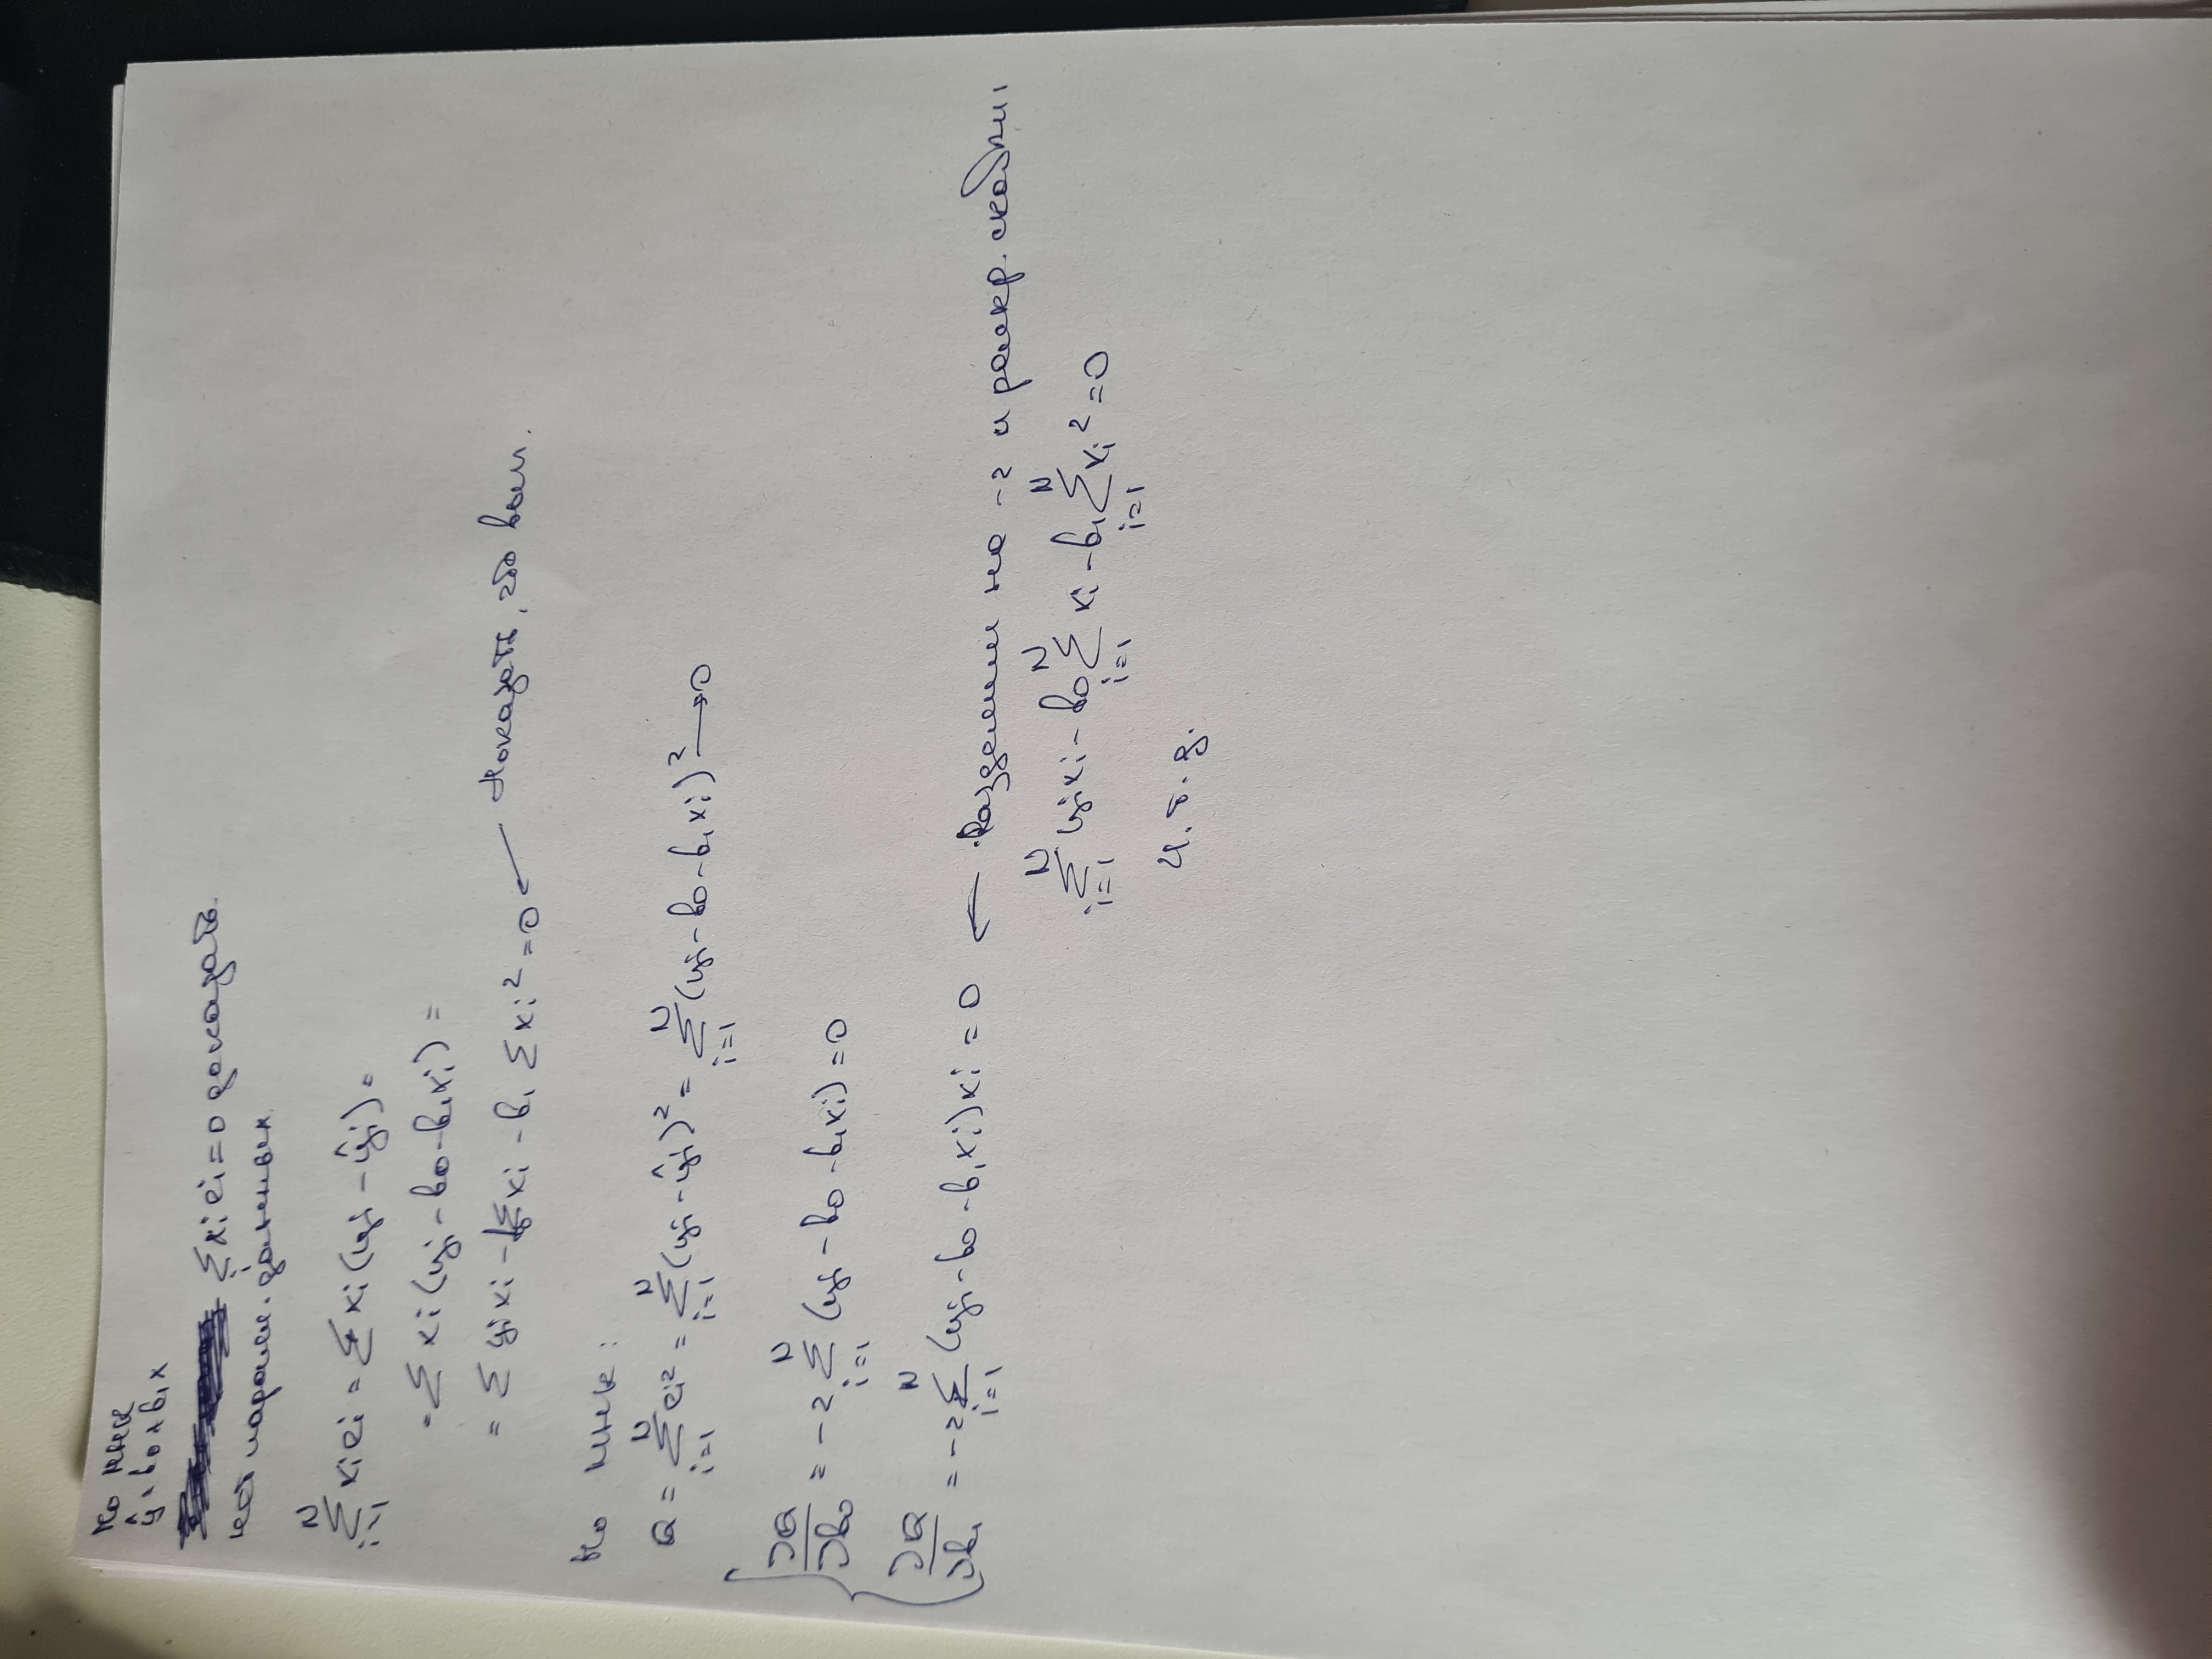 По МНК
ŷ = b₀ + b₁x
∑ᵢ xᵢeᵢ = 0 доказать
нет данных
∑ᵢ₌₁ᴺ xᵢeᵢ = ∑ xᵢ(yᵢ − ŷᵢ) =
= ∑ xᵢ(yᵢ − b₀ − b₁xᵢ) =
= ∑ yᵢxᵢ − b₀∑xᵢ − b₁ ∑xᵢ² = 0 ← Показать, что вып.
По МНК:
Q = ∑ᵢ₌₁ᴺ eᵢ² = ∑ᵢ₌₁ᴺ (yᵢ − ŷᵢ)² = ∑ᵢ₌₁ᴺ (yᵢ − b₀ − b₁xᵢ)² → 0
∂Q/∂b₀ = −2 ∑ᵢ₌₁ᴺ (yᵢ − b₀ − b₁xᵢ) = 0
∂Q/∂b₁ = −2 ∑ᵢ₌₁ᴺ (yᵢ − b₀ − b₁xᵢ)xᵢ = 0 ← Разделим на −2 и раскр. скобки:
∑ᵢ₌₁ᴺ yᵢxᵢ − b₀ ∑ᵢ₌₁ᴺ xᵢ − b₁ ∑ᵢ₌₁ᴺ xᵢ² = 0
Ч.т.д.